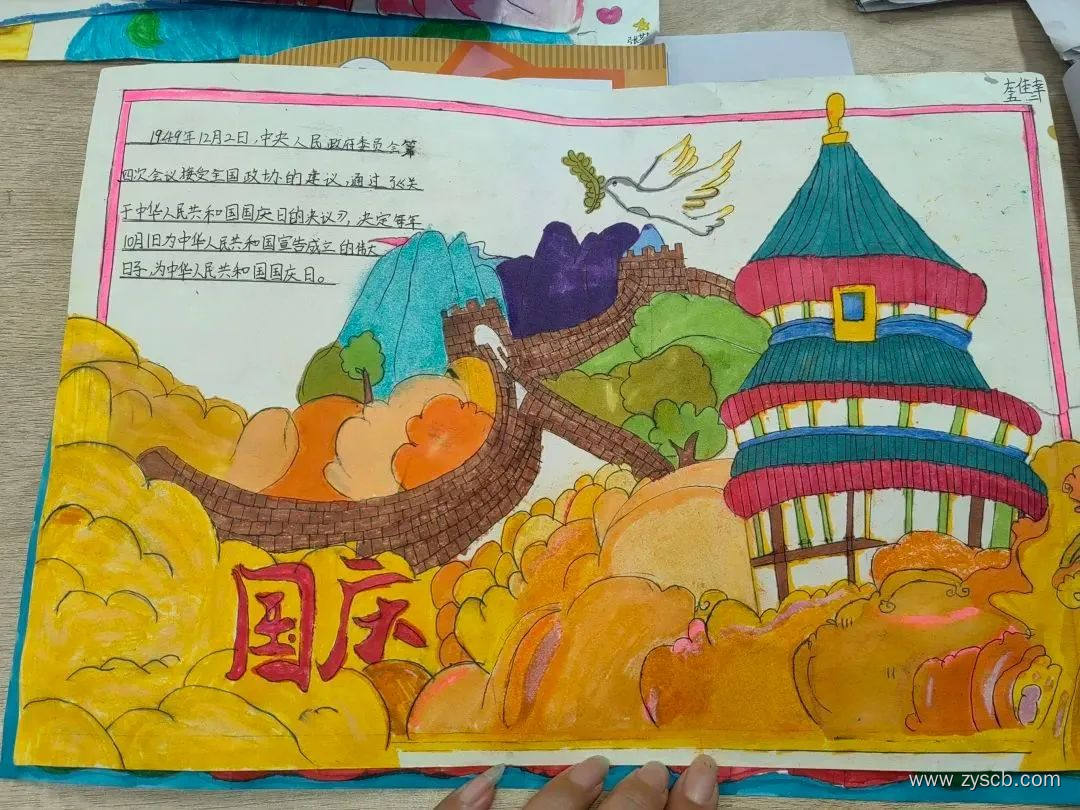 李佳幸
1949年12月2日,中央人民政府委员会第
四次会议接受全国政协的建议,通过了《关
于中华人民共和国国庆日的决议》,决定每年
10月1日为中华人民共和国宣告成立的伟大
日子,为中华人民共和国国庆日。
国庆
www.zyscb.com